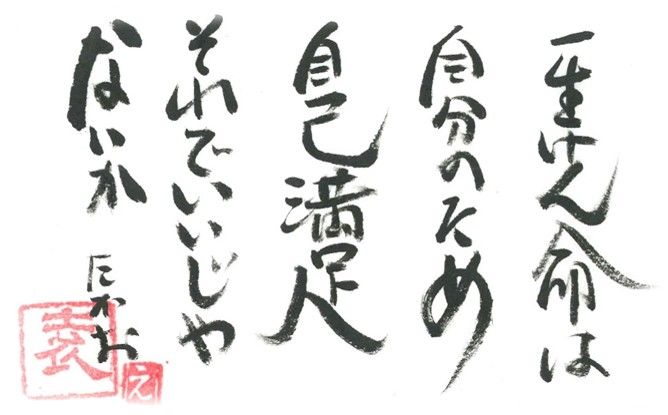 一生けん命は
自分のため
自己満足
それでいいじゃ
ないか
たかお
え